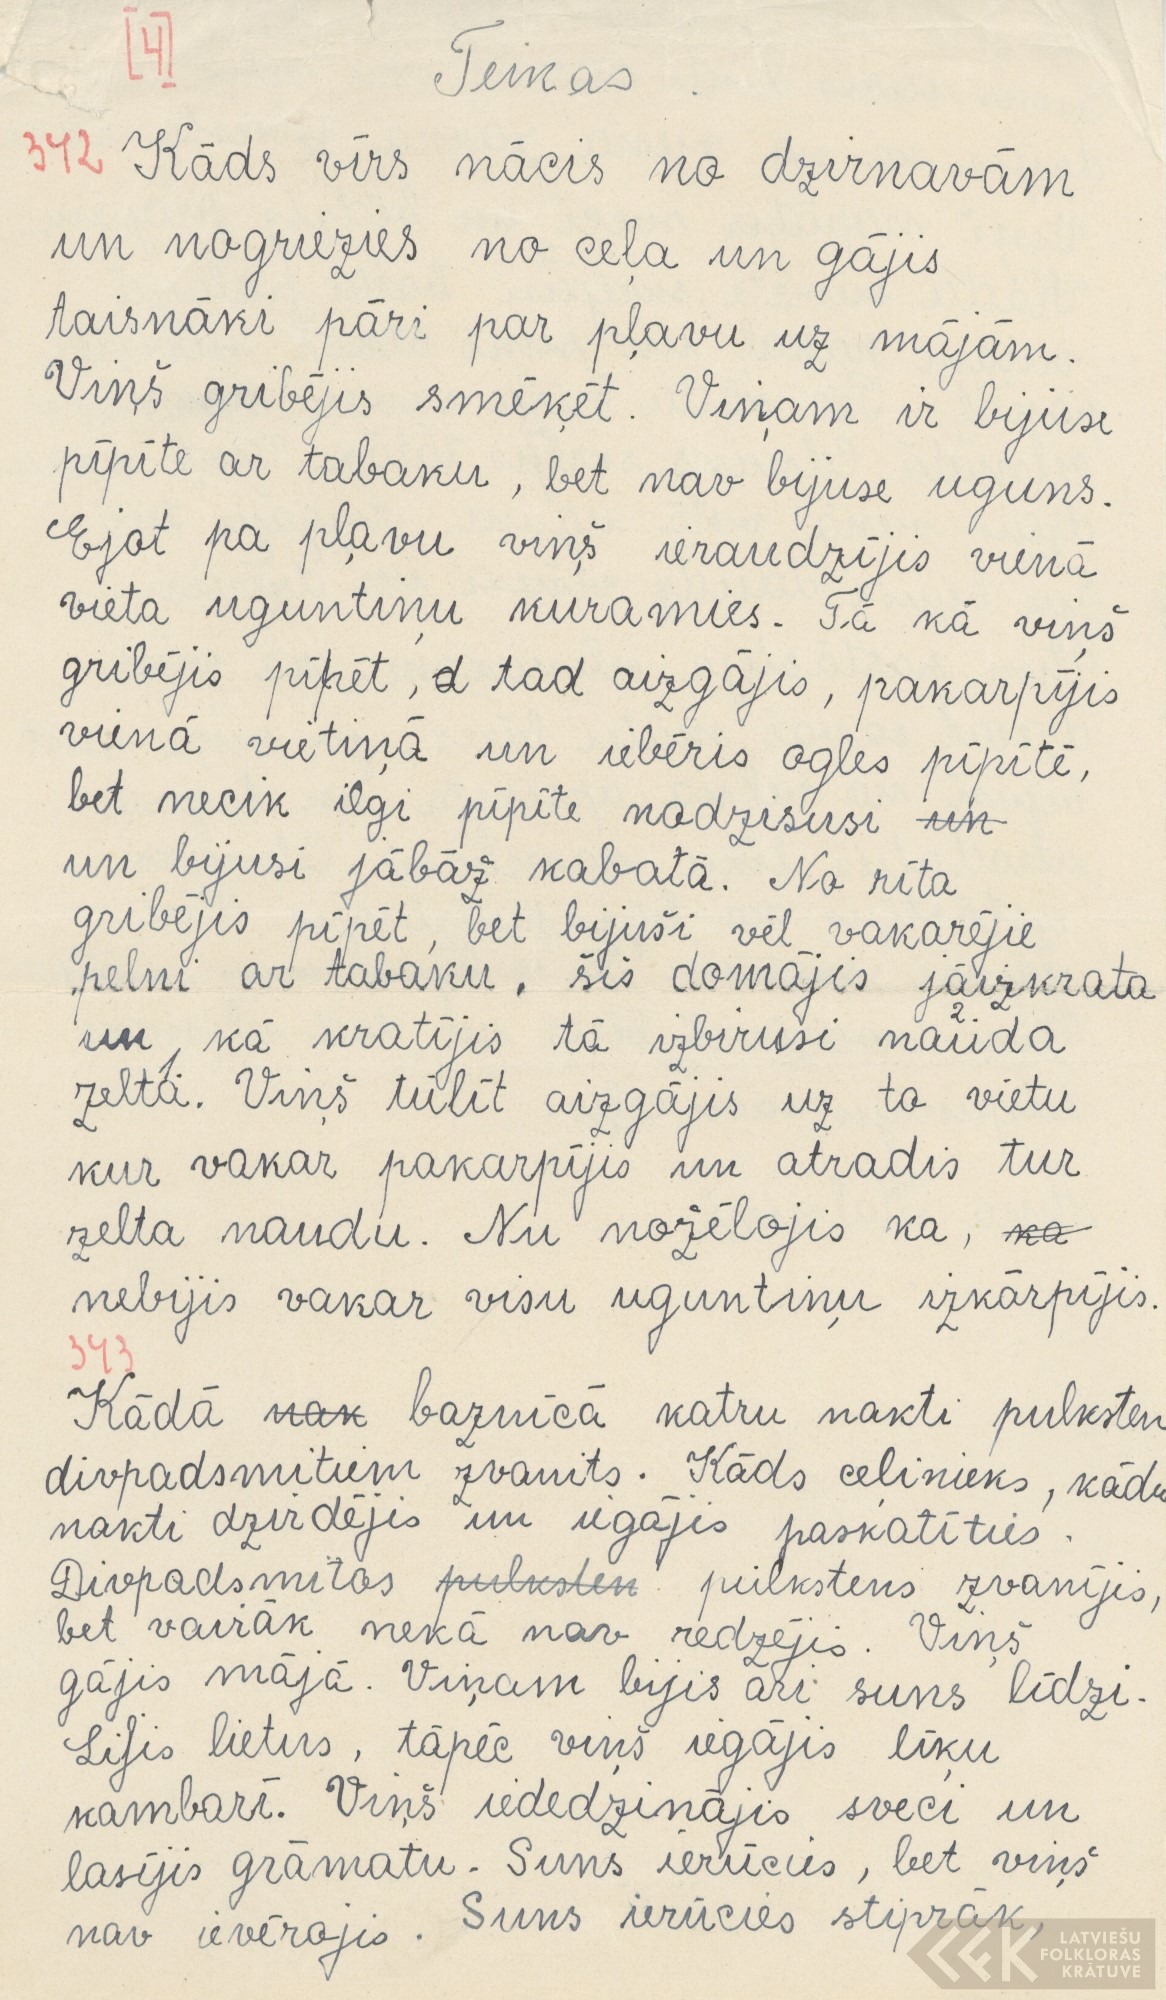 [4]
Teikas.
342 Kāds vīrs nācis no dzirnavām
un nogriezies no ceļa un gājis
taisnāki pāri par pļavu uz mājām.
Viņš gribējis smēķēt. Viņam ir bijuse
pīpīte ar tabaku, bet nav bijuse uguns.
Ejot pa pļavu viņš ieraudzījis vienā
vieta uguntiņu kuramies. Tā kā viņš
gribējis pīpēt, tad aizgājis, pakarpījis
vienā vietiņā un iebēris ogles pīpītē,
bet necik ilgi pīpīte nodzisusi un
un bijusi jābāž kabatā. No rīta
gribējis pīpēt, bet bijuši vēl vakarējie
pelni ar tabaku. šis domājis jāizkrata
un, kā kratījis tā izbirusi nauda
zelta. Viņš tūlīt aizgājis uz to vietu
kur vakar pakarpījis un atradis tur
zelta naudu. Nu nožēlojis ka, ka
nebijis vakar visu uguntiņu izkārpījis.
343
Kādā nak baznīcā katru nakti pulksten
divpadsmitiem zvanits. Kāds ceļinieks, kādu
nakti dzirdējis un iegājis paskatīties.
Divpadsmitos pulksten pulkstens zvanījis,
bet vairāk nekā nav redzējis. Viņš
gājis mājā. Viņam bijis āri suns līdzi.
Lijis lietus, tāpēc viņš iegājis līķu
kambarī. Viņš iededzinājis sveci un
lasījis grāmatu. Suns ierūcies, bet viņš
nav ievērojis. Suns ierūcies stiprāk,
LATVIEŠU
FOLKLORAS
KRĀTUVE